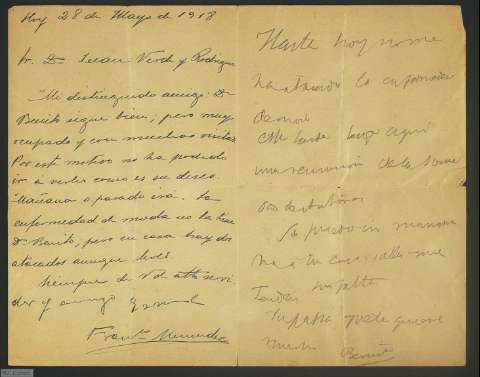 Hoy 28 de Mayo de 1918
Sr. Dn. Juan Verde y Rodríguez
Mi distinguido amigo: Dn
Benito sigue bien; pero muy
ocupado y con muchas visitas
Por este motivo no ha podido
ir á verles como es su deseo.
Mañana o pasado irá. La
enfermedad de moda no la tiene
Dn Benito, pero en casa hay dos
atacados aunque leves.
Siempre de Vd attº servi
dor y amigo
Franco Menendez
Hasta hoy no me
ha atacado la enfermedad
de moda
Esta tarde tengo aquí
una reunion de la Socie
dad de Autores
Si puedo ir mañana
ha á tu casa, alla me
Tendrás sin falta
Tu papa que te quiere
mucho
Benito